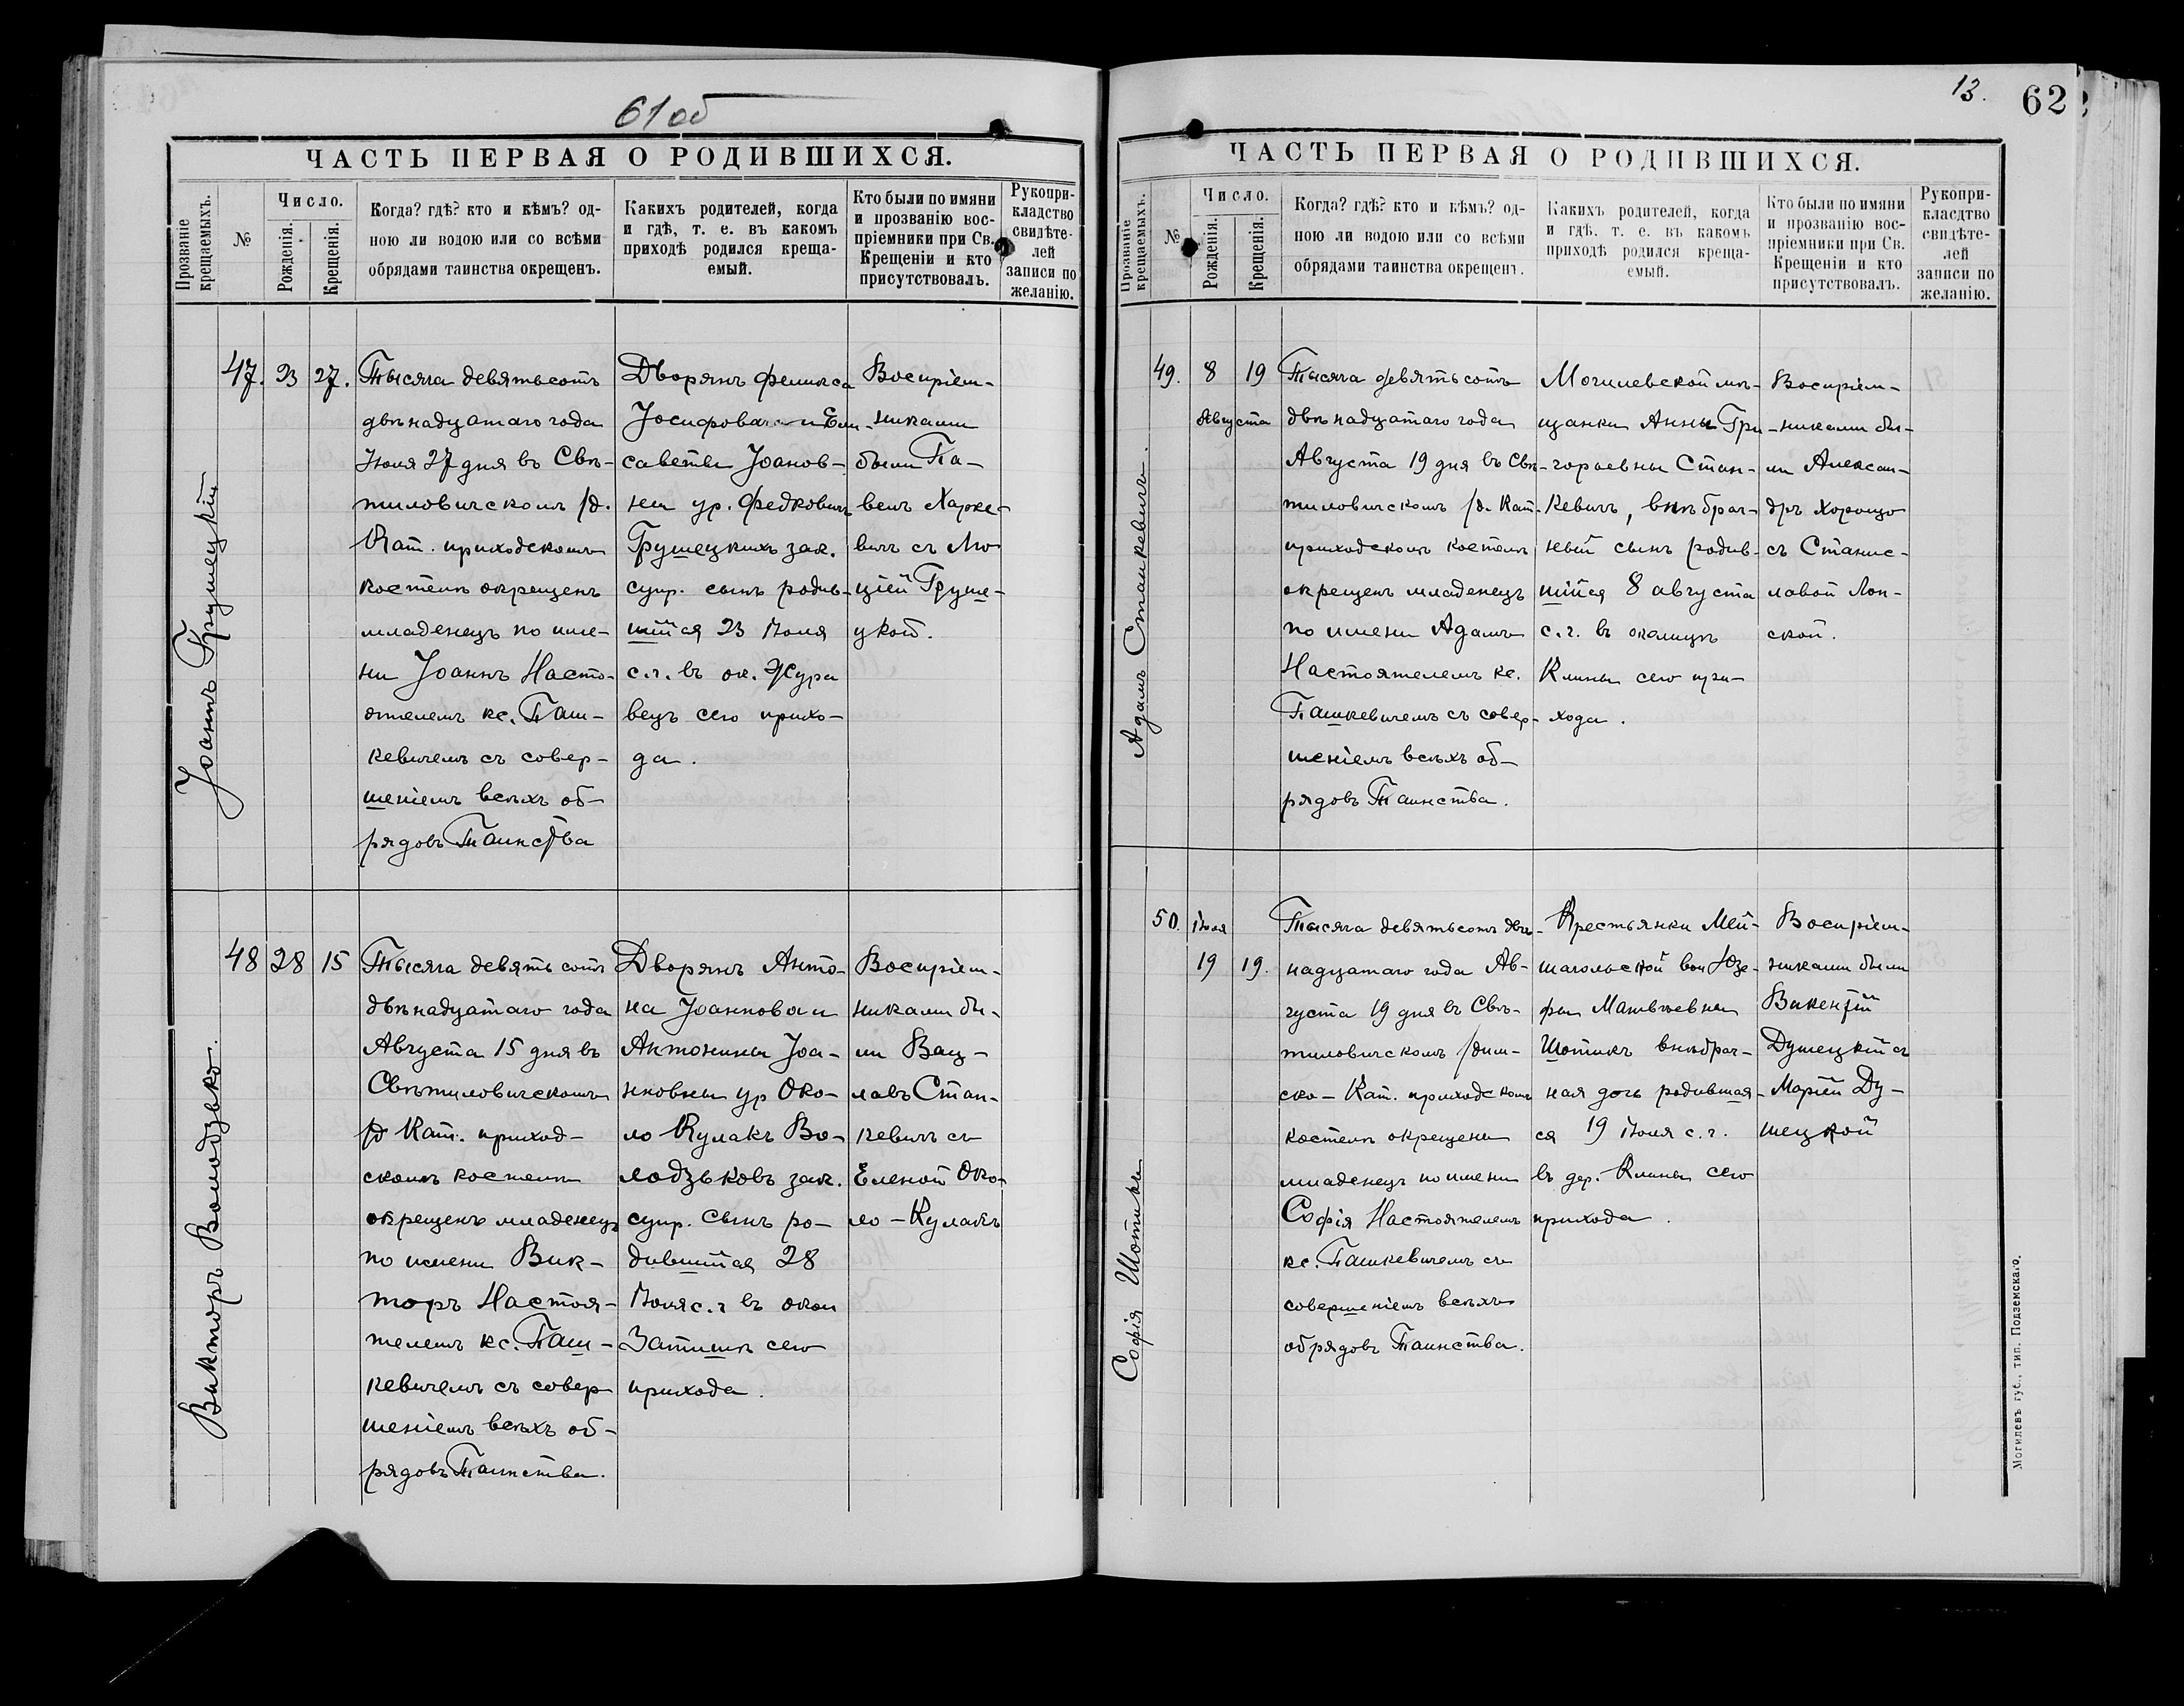 61 об
ЧАСТЬ ПЕРВАЯ О РОДИВШИХСЯ.
Прозваніе крещаемыхъ.
№
Число.
Рожденія.
Крещенія.
Когда? гдѣ? кто и кѣмъ? од-
ною ли водою или со всѣми
обрядами таинства окрещенъ.
Какихъ родителей, когда
и гдѣ, т. е. въ какомъ
приходѣ родился креща-
емый.
Кто были по имяни
и прозванію вос-
пріемники при Св.
Крещеніи и кто
присутствовалъ.
Рукопри-
кладство
свидѣте-
лей
записи по
желанію.
Іоаннъ Грушецкій
47. 23 27.
Тысяча девятьсотъ
двѣнадцатаго года
Іюля 27 дня въ Свѣ-
тиловичскомъ р.
Кат. приходскомъ
костелѣ окрещенъ
младенецъ по име-
ни Іоаннъ Насто-
ятелемъ кс. Паш-
кевичемъ съ совер-
шеніемъ всѣхъ об-
рядовъ Таинства
Дворянъ Феликса
Іосифова и Ели-
саветы Іоанов-
ны ур. Федковичъ
Грушецкихъ зак.
супр. сынъ родив-
шійся 23 Іюля
с.г. въ ок. Жура
вецъ сего прихо-
да.
Воспріем-
никами
были Па-
велъ Харке-
вичъ съ Лю
ціей Груше-
цкой.
Викторъ Володзько.
48 28 15
Тысяча девятьсотъ
двѣнадцатаго года
Августа 15 дня въ
Свѣтиловичскомъ
р Кат. приход-
скомъ костелѣ
окрещенъ младенецъ
по имени Вик-
торъ Настоя-
телемъ кс. Паш-
кевичемъ съ совер
шеніемъ всѣхъ об-
рядовъ Таинства.
Дворянъ Анто-
на Іоаннова и
Антонины Іоа-
нновны ур Око-
ло Кулакъ Во-
лодзьковъ зак.
супр. сынъ ро-
дившійся 28
Іюля с.г въ окол
Затишѣ сего
прихода.
Воспріем-
никами бы-
ли Вац-
лавъ Стан-
кевичъ съ
Еленой Око-
ло-Кулакъ
13.
62
ЧАСТЬ ПЕРВАЯ О РОДИВШИХСЯ.
Прозваніе крещаемыхъ.
№
Число.
Рожденія.
Крещенія.
Когда? гдѣ? кто и кѣмъ? од-
ною ли водою или со всѣми
обрядами таинства окрещенъ.
Какихъ родителей, когда
и гдѣ. т. е. въ какомъ
приходѣ родился креща-
емый.
Кто были по имяни
и прозванію вос-
пріемники при Св.
Крещеніи и кто
присутствовалъ.
Рукопри-
класдтво
свидѣте-
лей
записи по
желанію.
Адамъ Станкевичъ.
49. 8 19
Августа
Тысяча девятьсотъ
двѣнадцатаго года
Августа 19 дня въ Свѣ-
тиловичскомъ р. Кат.
приходскомъ костелѣ
окрещенъ младенецъ
по имени Адамъ
Настоятелемъ кс.
Пашкевичемъ съ совер-
шеніемъ всѣхъ об-
рядовъ Таинства.
Могилевской мѣ-
щанки Анны Гри-
горьевны Стан-
кевичъ, внѣбрач-
ный сынъ родив-
шійся 8 августа
с.г. въ околицѣ
Клины сего при-
хода.
Воспріем-
никами бы-
ли Алексан-
дръ Хорощо
съ Станис-
лавой Лоп-
ской.
Софія Шотикъ
50. Іюля
19 19.
Тысяча девятьсотъ двѣ-
надцатаго года Ав-
густа 19 дня въ Свѣ-
тиловичскомъ рим-
ско-Кат. приходскомъ
костелѣ окрещенъ
младенецъ по имени
Софія Настоятелемъ
кс. Пашкевичемъ съ
совершеніемъ всѣхъ
обрядовъ Таинства.
Крестьянки Мей-
шагольской вол Юзе-
фы Матвѣевны
Шотикъ внѣбрач-
ная дочь родившая-
ся 19 Іюля с.г.
въ дер. Клины сего
прихода.
Воспріем-
никами были
Викентій
Душецкій съ
Маріей Ду-
шецкой
Могилевъ губ., тип. Подземскаго.